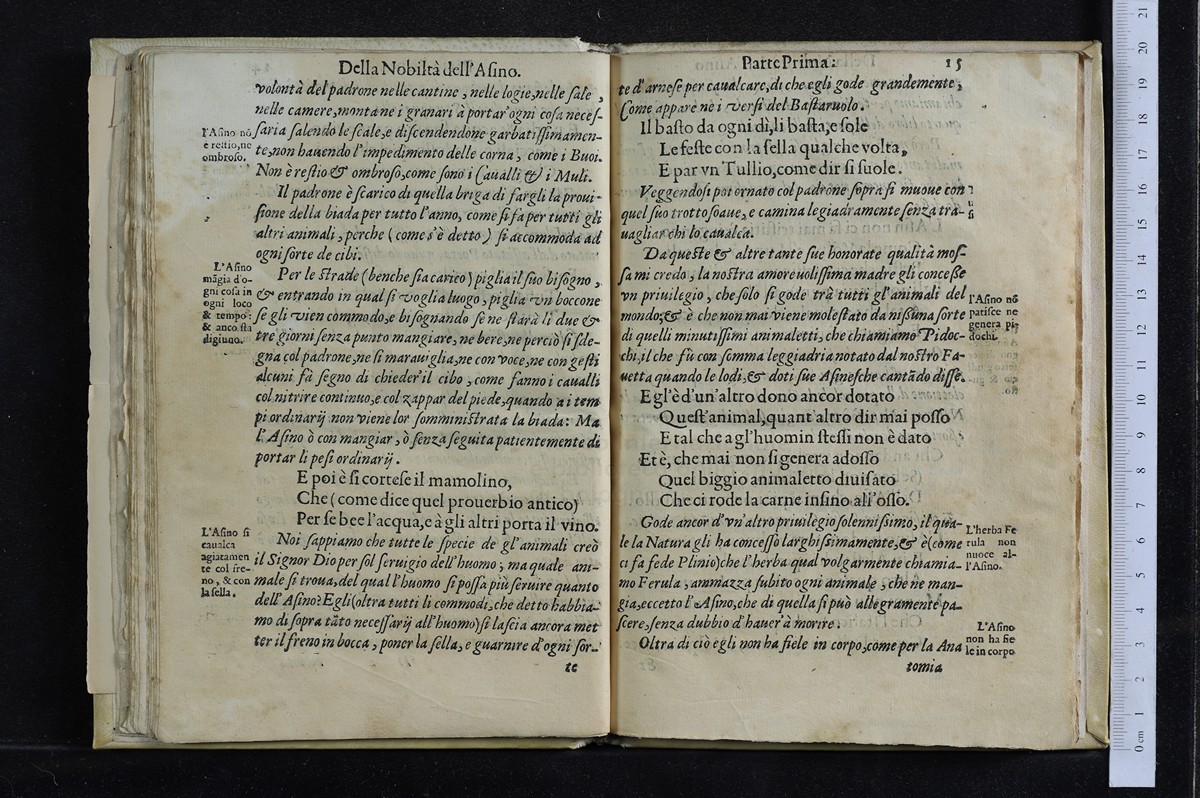 Della Nobiltà dell'Asino.
volontà del padrone nelle cantine, nelle logie, nelle sale,
nelle camere, montane i granari à portar'ogni cosa neces-
saria salendo le scale, e discendendone garbatissimamen-
te, non hauendo l'impedimento delle corna, come i Buoi.
Non è restio & ombroso, come sono i Caualli & i Muli.
l'Asino nō
è restio, ne
ombroso.
Il padrone è scarico di quella briga di fargli la proui-
sione della biada per tutto l'anno, come si fa per tutti gli
altri animali, perche (come s'è detto) si accommoda ad
ogni sorte de cibi.
Per le strade (benche sia carico) piglia il suo bisogno,
& entrando in qual si voglia luogo, piglia vn boccone
se gli vien commodo, e bisognando se ne starà lì due &
tre giorni senza punto mangiare, ne bere, ne perciò si sde-
gna col padrone, ne si marauiglia, ne con voce, ne con gesti
alcuni fà segno di chieder'il cibo, come fanno i caualli
col nitrire continuo, e col zappar del piede, quando a i tem
pi ordinarij non viene lor somministrata la biada: Ma
l'Asino ò con mangiar, ò senza seguita patientemente di
portar li pesi ordinarij.
L'Asino
māgia d'o-
gni cosa in
ogni loco
& tempo:
& anco sta
digiuno.
E poi è sì cortese il mamolino,
Che (come dice quel prouerbio antico)
Per se bee l'acqua, e à gli altri porta il vino.
Noi sappiamo che tutte le specie de gl'animali creò
il Signor Dio per sol seruigio dell'huomo; ma quale ani-
male si troua, del qual l'huomo si possa più seruire quanto
dell'Asino? Egli (oltra tutti li commodi, che detto habbia-
mo di sopra tāto necessarij all'huomo) si lascia ancora met
ter il freno in bocca, poner la sella, e guarnire d'ogni sor-
te
L'Asino si
caualca
agiatamen
te col fre-
no, & con
la sella.
Parte Prima:
15
te d'arnese per caualcare, di che egli gode grandemente,
Come appare ne i versi del Bastaruolo.
Il basto da ogni dì, li basta, e sole
Le feste con la sella qualche volta,
E par vn Tullio, come dir si suole.
Veggendosi poi ornato col padrone sopra si muoue con
quel suo trotto soaue, e camina legiadramente senza tra-
uagliar chi lo caualca.
Da queste & altre tante sue honorate qualità mos-
sa mi credo, la nostra amoreuolissima madre gli concesse
vn priuilegio, che solo si gode trà tutti gl'animali del
mondo; & è che non mai viene molestato da nissuna sorte
di quelli minutissimi animaletti, che chiamiamo Pidoc-
chi, il che fù con somma leggiadria notato dal nostro Fa-
uetta quando le lodi, & doti sue Asinesche cantādo disse.
L'Asino nō
patisce ne
genera pi-
dochi.
Egl'è d'un'altro dono ancor dotato
Quest'animal, quant'altro dir mai posso
E tal che a gl'huomin stessi non è dato
Et è, che mai non si genera adosso
Quel biggio animaletto diuisato
Che ci rode la carne insino all'osso.
Gode ancor d'vn'altro priuilegio solennissimo, il qua-
le la Natura gli ha concesso larghissimamente, & è (come
ci fa fede Plinio) che l'herba qual volgarmente chiamia-
mo Ferula, ammazza subito ogni animale, che ne man-
gia, eccetto l'Asino, che di quella si può allegramente pa-
scere, senza dubbio d'hauer'à morire.
L'herba Fe
rula non
nuoce al-
l'Asino.
Oltra di ciò egli non ha fiele in corpo, come per la Ana
tomia
L'Asino
non ha fie
le in corpo